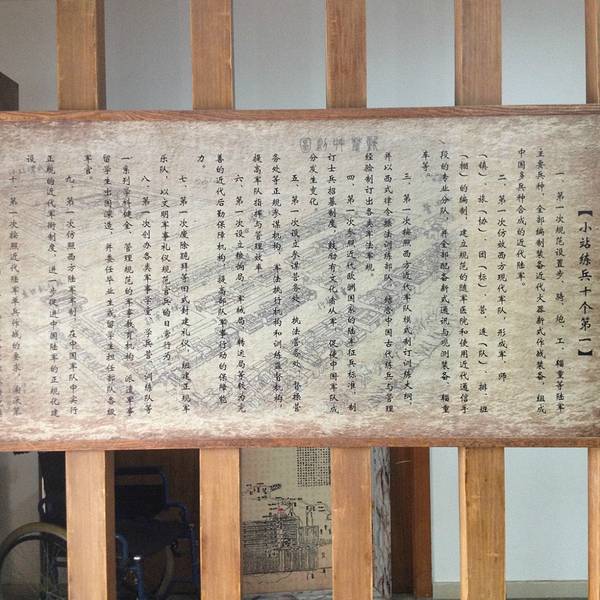 【小站练兵十个第一】
一、第一次规范设置步、骑、炮、工、辎重等陆军
主要兵种，全部编制装备近代火器新式作战装备，组成
中国多兵种合成的近代陆军。
二、第一次仿效西方现代军队，形成军、师
（镇）、旅（协）、团（标）、营、连（队）、排、班
（棚）的编制，建立规范的随军医院和使用近代通信手
段的专业分队，并全部配备新式通讯与观测装备、辎重
车等。
三、第一次按照西方近代军队模式制订训练大纲，
并以西式律令操法训练部队，结合中国古代练兵与管理
经验制订出各类兵法军规。
四、第一次参照近代欧洲国家的陆军征兵标准，制
订士兵招募制度，鼓励有文化者从军，促使中国军队成
分发生变化
五、第一次设立参谋营务处、执法营务处、督操营
务处等正规参谋机构、军法执行机构和训练监督机构，
提高军队指挥与管理效率。
六、第一次设立粮饷局、军械局、转运局等较为完
善的近代后勤保障机构，提高部队军事行动的保障能
力。
七、第一次废除跪拜等旧式封建礼仪，组建正规军
乐队，以文明军事礼仪规范官兵的日常行为。
八、第一次创办各类军事学堂、学兵营、训练队等
一系列学科健全、管理规范的军事教学机构，派遣军事
留学生出国深造，并委任毕业生或留学生担任部队各级
军官。
九、第一次仿照西方陆军军制，在中国军队中实行
正规的近代军衔制度，进一步促进中国陆军的正规化建
设。
十、第一次按照近代陆军兵兵作战的要求，